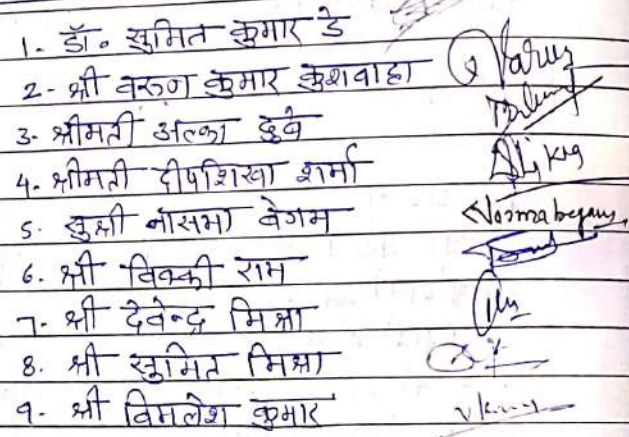 1. डॉ. सुमित कुमार डे
2- श्री वरुण कुमार कुशवाहा Varun
3- श्रीमती अल्का दुबे
4- श्रीमती दीपशिखा शर्मा
5- सुश्री नासमा बेगम Nasma begam
6- श्री विक्की राम
7- श्री देवेन्द्र मिश्रा
8. श्री सुमित मिश्रा
9- श्री विमलेश कुमार